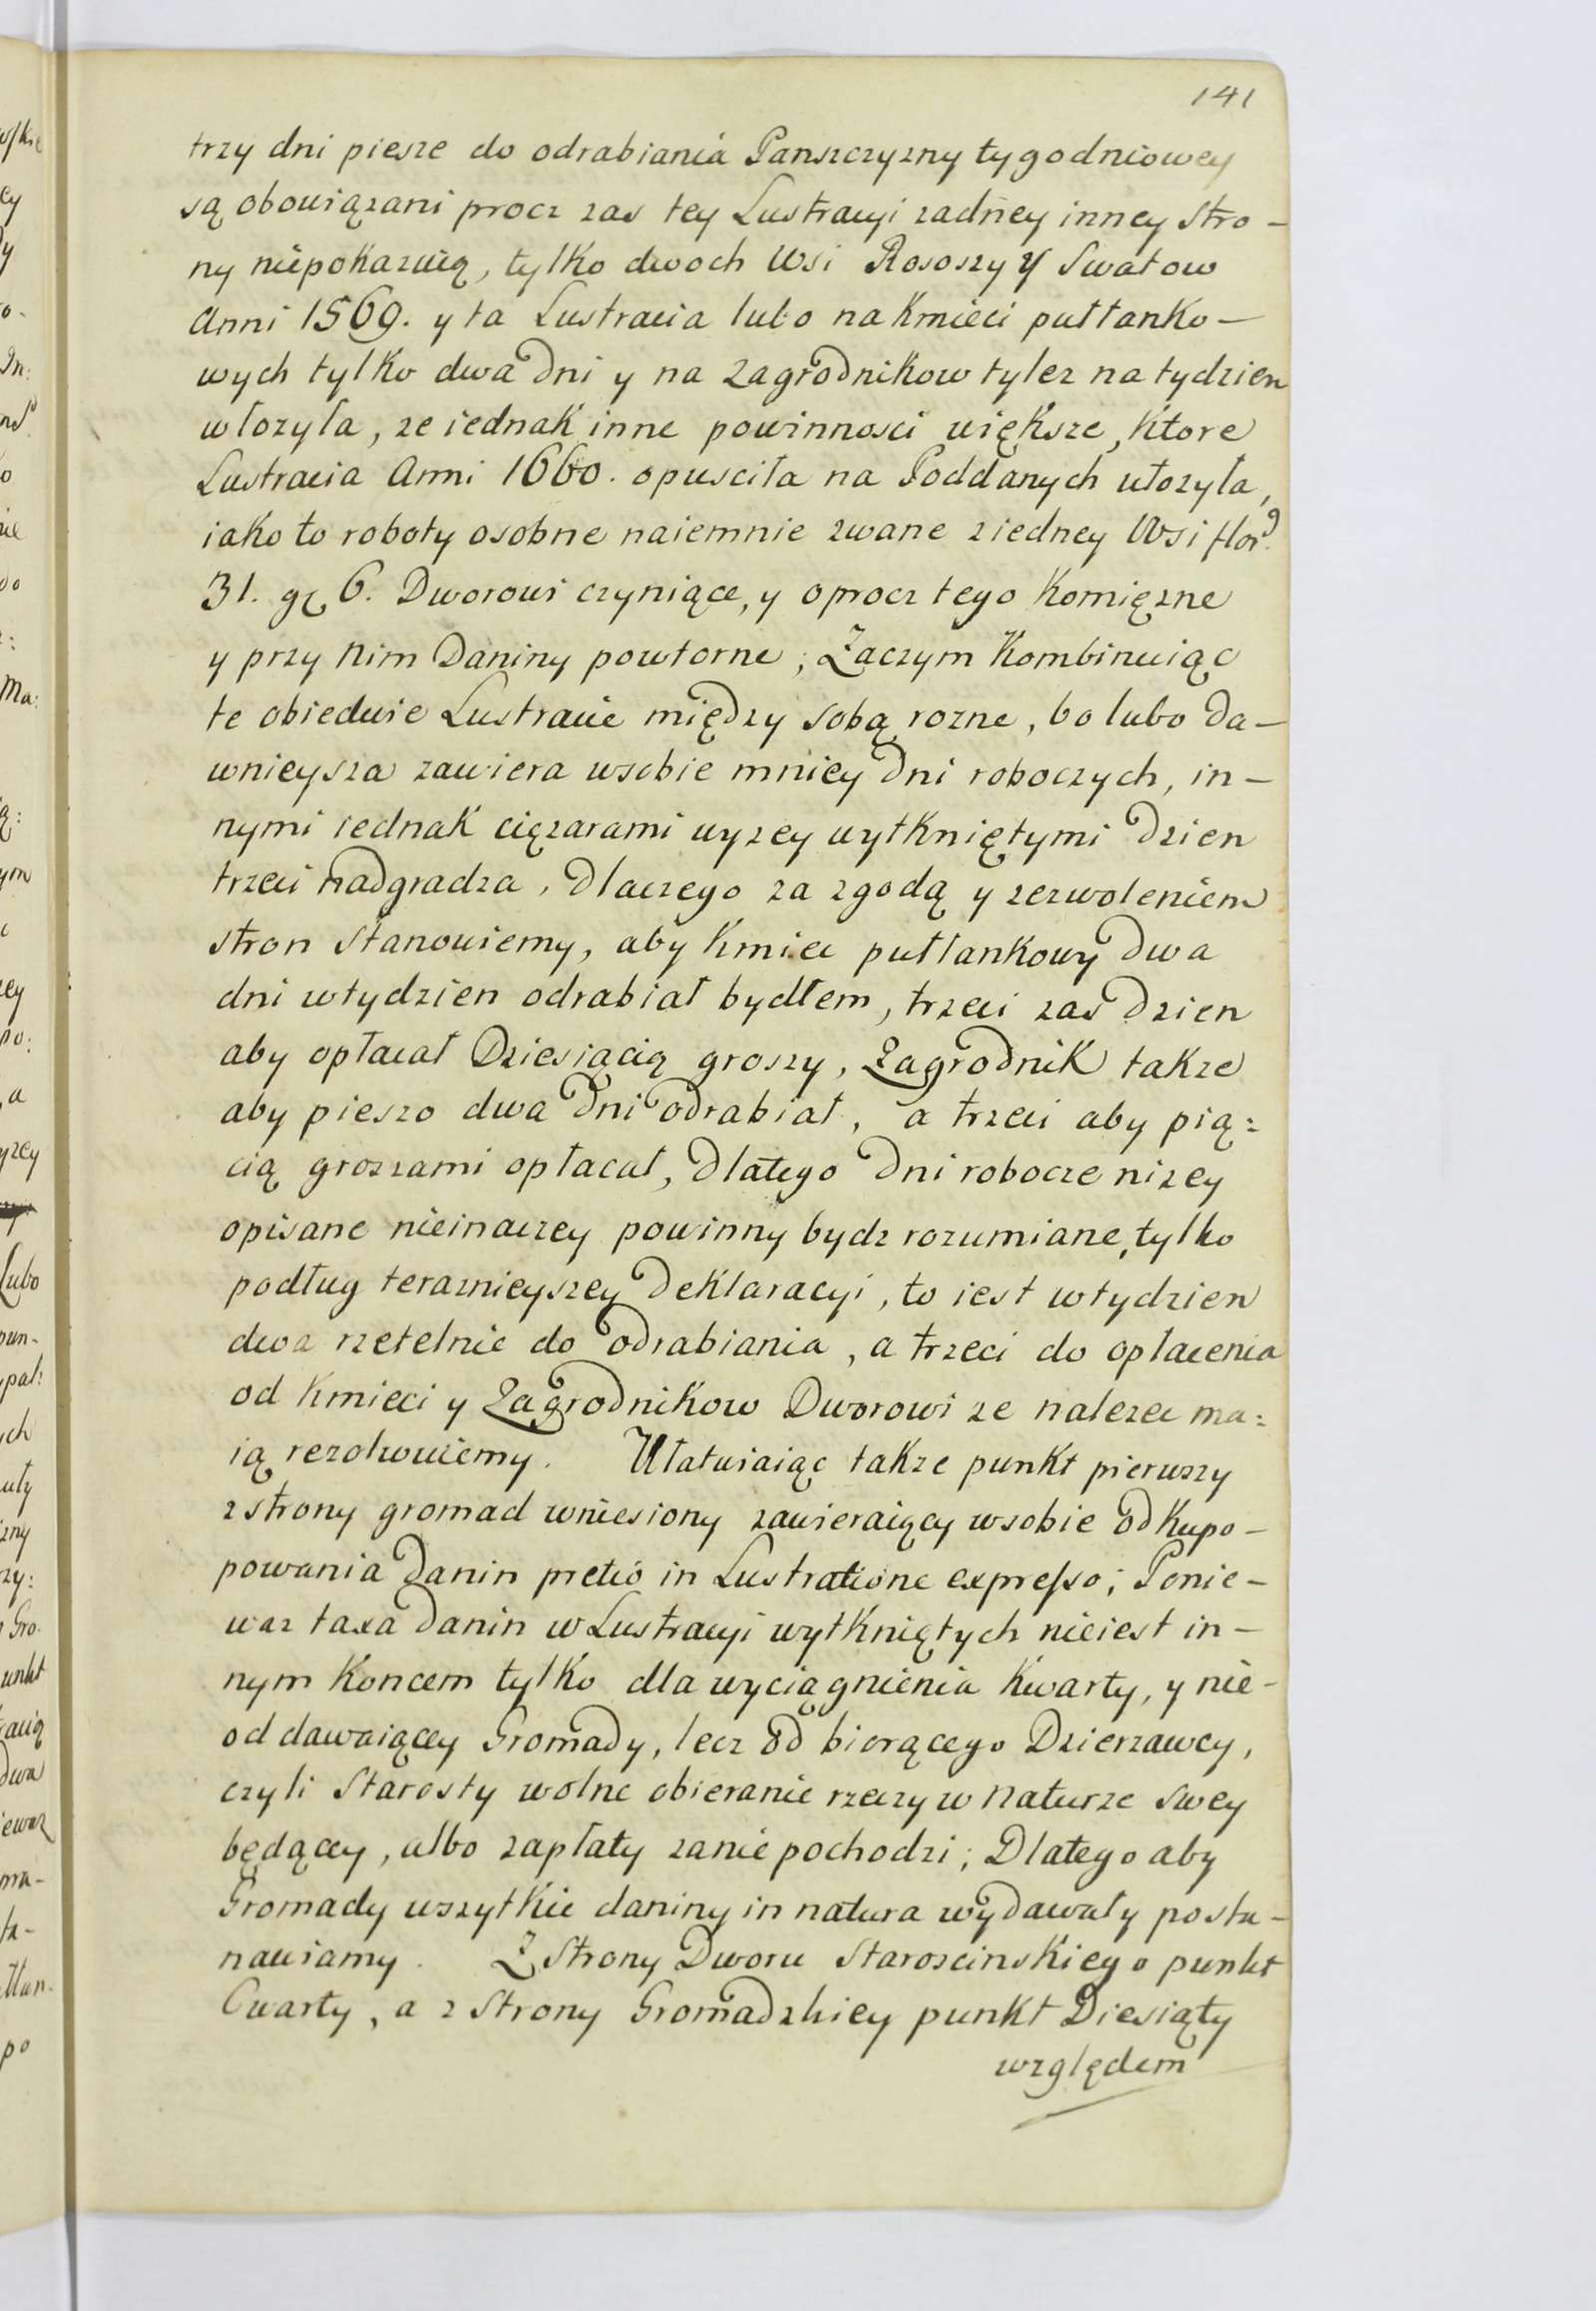 141
trzy dni piesze do odrabiania Panszczyzny tygodniowey
są obowiązani procz zas tey Lustracyi zadney inney stro-
ny niepokazuią, tylko dwoch Wsi Rososzy y Swatow
Anni 1569. y ta Lustracia lubo na Kmieci pułłanko-
wych tylko dwa dni y na Zagrodnikow tylez na tydzien
włozyła, ze iednak inne powinnosci większe, Ktore
Lustracia Anni 1660. opusciła na Poddanych ułozyła,
iako to roboty osobne naiemnie zwane z iedney Wsi flor.
31. gr 6. Dworowi czyniące, y oprocz tego Komięzne
y przy nim Daniny powtorne; Zaczym Kombinuiąc
te obiedwie Lustracie między sobą rozne, bo lubo da-
wnieysza zawiera wsobie mniey dni roboczych, in-
nymi iednak ciężarami wyzey wytkniętymi dzien
trzeci nadgradza, dlaczego za zgodą y zezwoleniem
stron stanowiemy, aby Kmiec pułłankowy dwa
dni wtydzien odrabiał bydłem, trzeci zas dzien
aby opłacał Dziesiącią groszy, Zagrodnik takze
aby pieszo dwa dni odrabiał, a trzeci aby pią:
cią groszami opłacał, dlatego dni robocze nizey
opisane nieinaczey powinny bydz rozumiane, tylko
podług teraznieyszey deklaracyi, to iest wtydzien
dwa rzetelnie do odrabiania, a trzeci do opłacenia
od Kmieci y Zagrodnikow Dworowi ze nalezec ma:
ią rezolwuiemy. Ułatwiaiąc takze punkt pierwszy
z strony gromad wniesiony zawieraiący wsobie odkupo-
powania danin pretio in Lustratione expresso; Ponie-
waz taxa danin w Lustracyi wytkniętych nieiest in-
nym Koncem tylko dla wyciągnienia Kwarty, y nie-
od dawaiącey Gromady, lecz od biorącego Dzierzawcy,
czyli Starosty wolne obieranie rzeczy w naturze swey
będącey, albo zapłaty zanie pochodzi; Dlatego aby
Gromady wszytkie daniny in natura wydawały posta-
nawiamy. Z Strony Dworu Staroscinskiego punkt
Cwarty, a z Strony Gromadzkiey punkt Diesiąty
względem